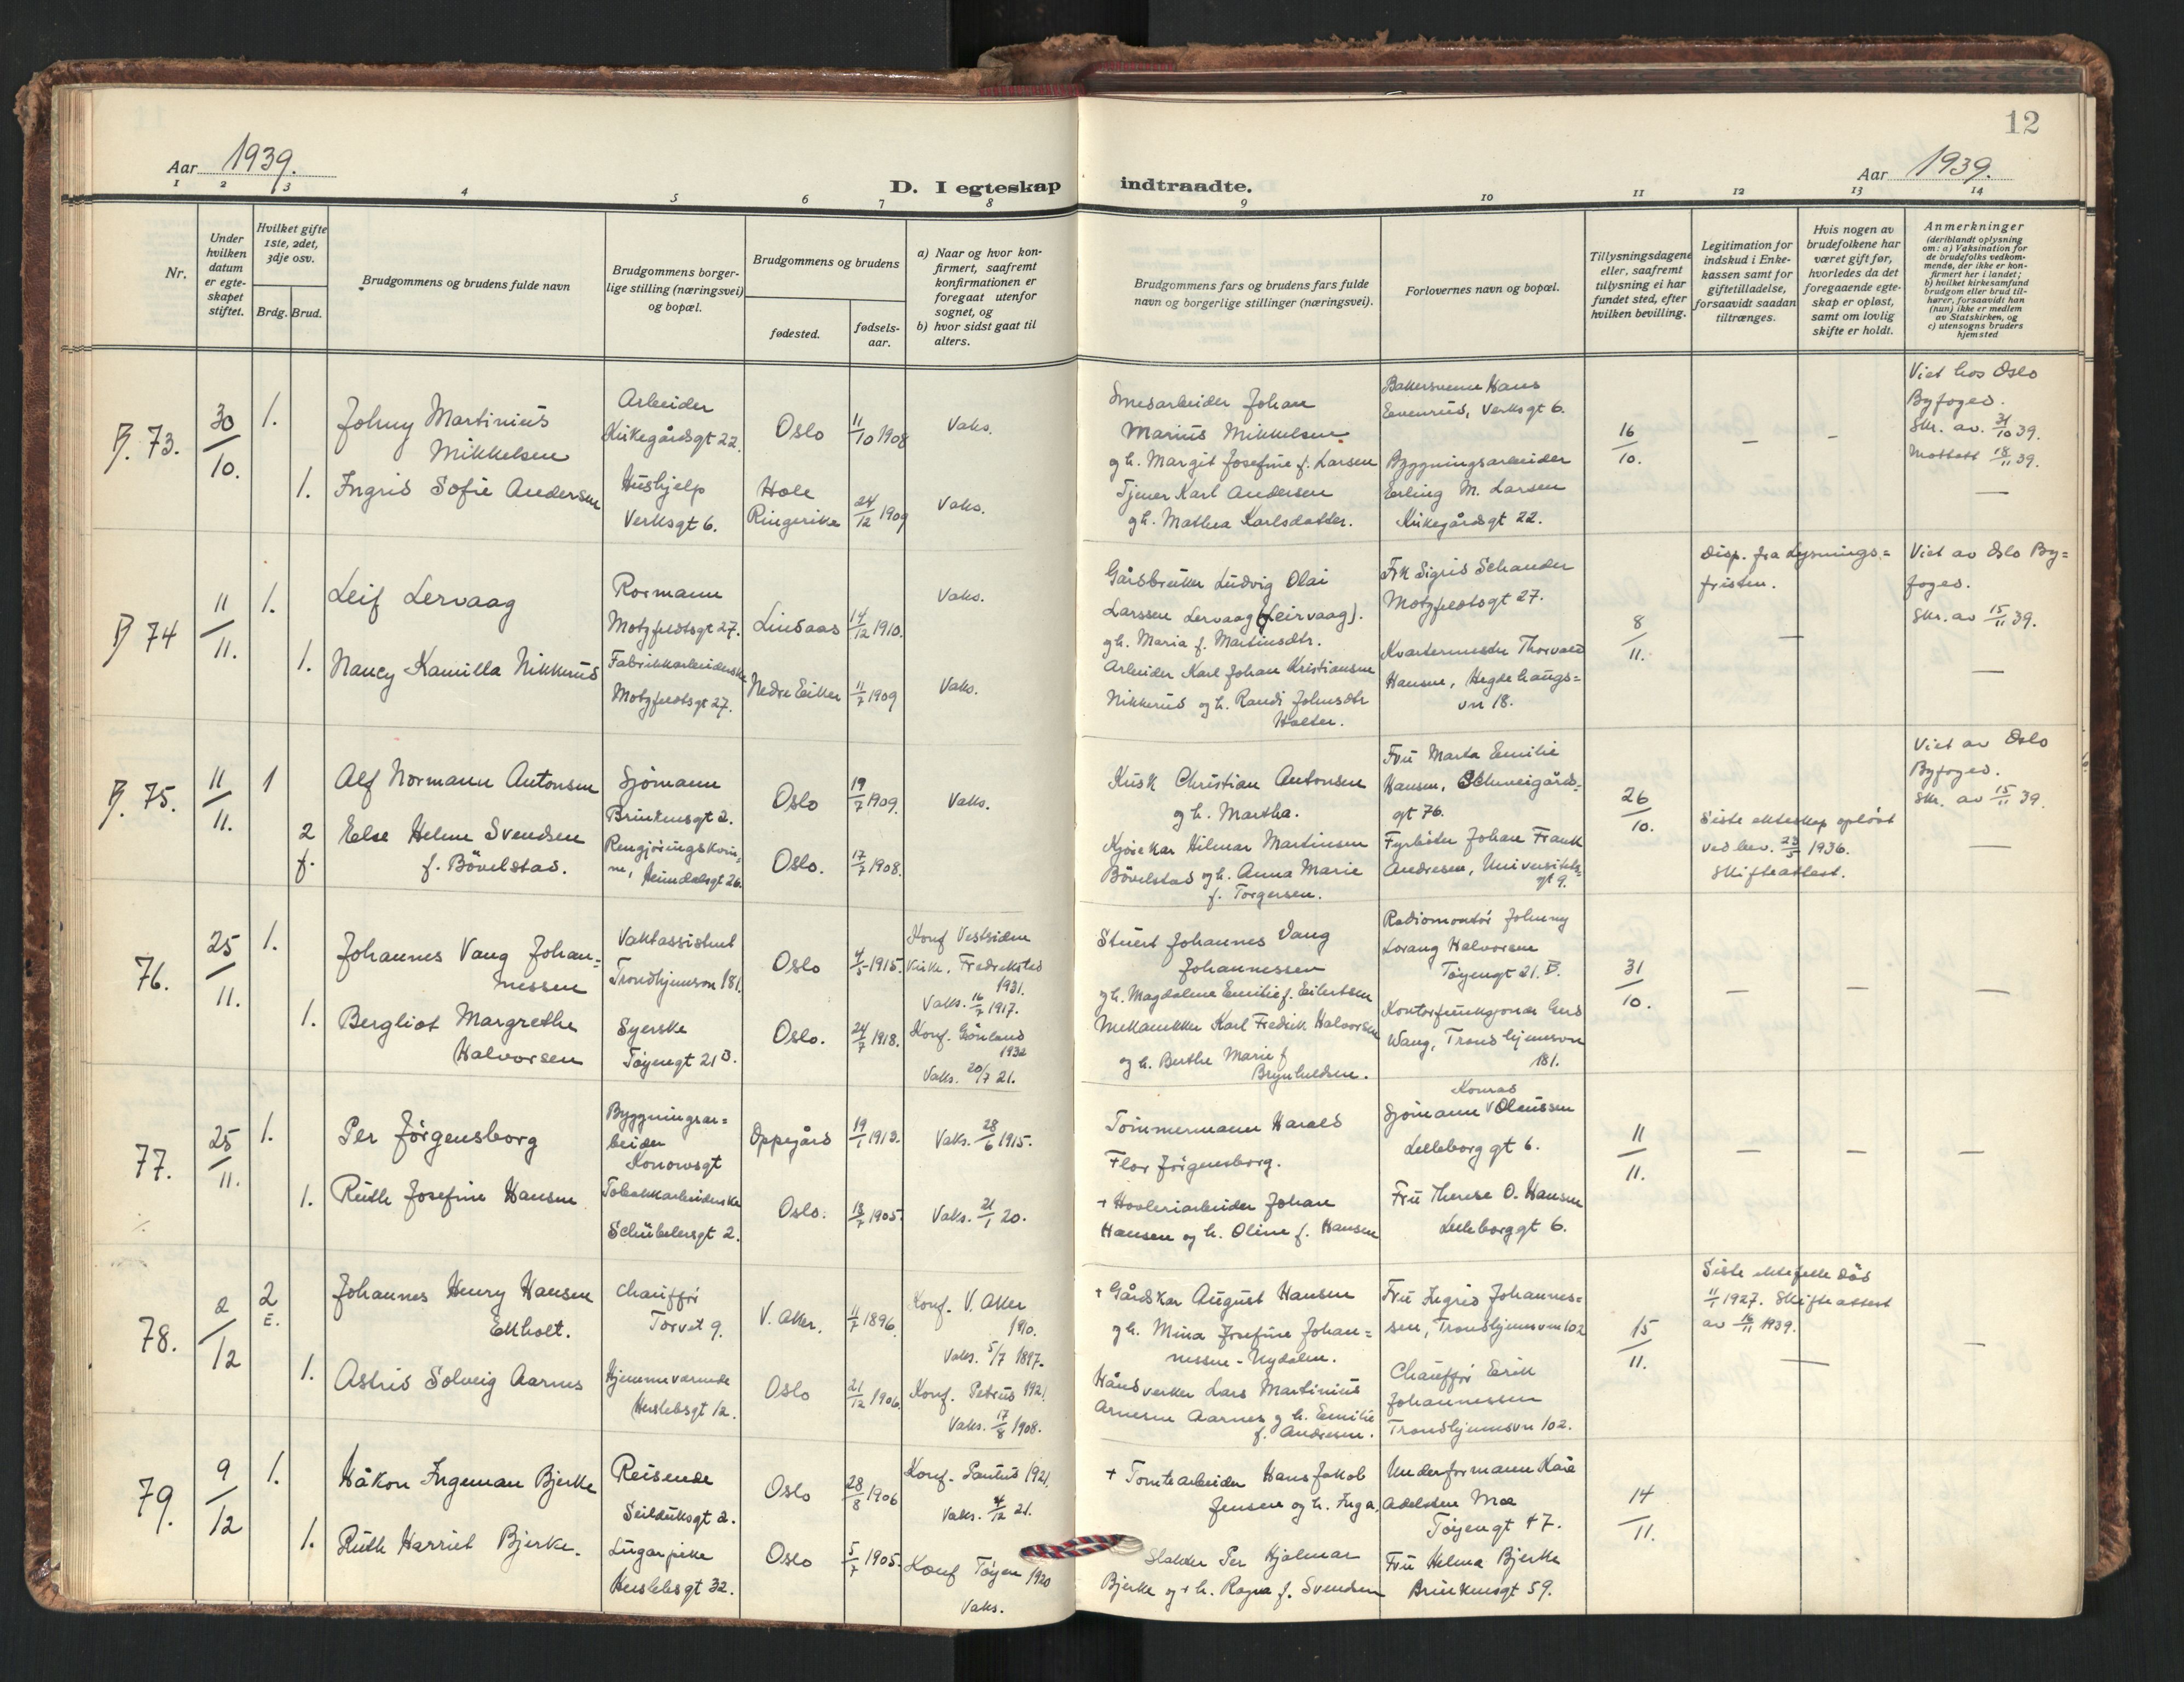 12
Aar 1939.
Aar 1939.
D. I egteskap indtraadte.
1 2 3 4 5 6 7 8 9 10 11 12 13 14
Nr.
Under
hvilken
datum
er egte-
skapet
stiftet.
Hvilket gifte
1ste, 2det,
3dje osv.
Brdg. Brud.
Brudgommens og brudens fulde navn
Brudgommens borger-
lige stilling (næringsvei)
og bopæl.
Brudgommens og brudens
fødested.
fødsels-
aar.
a) Naar og hvor kon-
firmert, saafremt
konfirmationen er
foregaat utenfor
sognet, og
b) hvor sidst gaat til
alters.
Brudgommens fars og brudens fars fulde
navn og borgerlige stillinger (næringsvei).
Forlovernes navn og bopæl.
Tillysningsdagene
eller, saafremt
tillysning ei har
fundet sted, efter
hvilken bevilling.
Legitimation for
indskud i Enke-
kassen samt for
giftetilladelse,
forsaavidt saadan
tiltrænges.
Hvis nogen av
brudefolkene har
været gift før,
hvorledes da det
foregaaende egte-
skap er opløst,
samt om lovlig
skifte er holdt.
Anmerkninger
(deriblandt oplysning
om: a) Vaksination for
de brudefolks vedkom-
mende, der ikke er kon-
firmert her i landet;
b) hvilket kirkesamfund
brudgom eller brud til-
hører, forsaavidt han
(hun) ikke er medlem
av Statskirken, og
c) utensogns bruders
hjemsted
B. 73.
30/10.
1.
Johny Martinius
Mikkelsen
Arbeider
Kirkegårdsgt 22.
Oslo
11/10 1908
Vaks.
1.
Ingrid Sofie Andersen
Hushjelp
Verksgt 6.
Hole
Ringerike
24/12 1909
Vaks.
Smedarbeider Johan
Marius Mikkelsen
og h. Margit Josefine f. Larsen
Tjener Karl Andersen
og h. Mathea Karlsdatter.
Bakersvenn Hans
Evenrud, Verksgt 6.
Bygningsarbeider
Erling M. Larsen
Kirkegårdsgt 22.
16/10.
—
—
Viet hos Oslo
Byfoged.
Skr. av. 31/10 39.
Mottatt 18/11 39.
—
B 74
11/11.
1.
Leif Lervaag
Rormann
Motzfeldtsgt 27.
Lindaas
14/12 1910.
Vaks.
1.
Nancy Kamilla Nikkerud
Fabrikkarbeiderske
Motzfeldtsgt 27.
Nedre Eiker
11/7 1909
Vaks.
Gårdbruker Ludvig Olai
Larssen Lervaag (Leirvaag).
og h. Maria f. Martinsdtr.
Arbeider Karl Johan Kristiansen
Nikkerud og h. Randi Johnsdtr
Halter.
Frk Sigrid Schander
Motzfeldtsgt 27.
Kvartermester Thorvald
Hansen, Hegdehaugs=
vn 18.
8/11.
Disp. fra Lysnings=
fristen.
—
Viet av Oslo By=
foged.
Skr. av 15/11 39.
—
B. 75.
11/11.
1
Alf Normann Antonsen
Sjömann
Brinkensgt 2.
Oslo
19/7 1909.
Vaks.
2
f.
Else Helene Svendsen
f. Bövelstad.
Rengjöringskvin=
ne, Heimdalsgt 26.
Oslo.
17/7 1908.
Kusk Christian Antonsen
og h. Martha.
Kjörekar Hilmar Martinsen
Bövelstad og h. Anna Marie
f. Torgersen.
Fru Marta Emilie
Hansen, Schweigårds-
gt 76.
Fyrböter Johan Frank
Andresen, Universitets-
gt 9.
26/10.
Siste ekteskap oplöst
ved bev. 23/5 1936.
Skifteattest.
Viet av Oslo
Byfoged.
Skr. av 15/11 39.
—
76.
25/11.
1.
Johannes Vang Johan=
nessen
Vaktassistent
Trondhjemsvn 181.
Oslo
4/5 1915.
Konf Vestsiden
kirke, Fredrikstad
1931.
Vaks. 16/7 1917.
1.
Bergliot Margrethe
Halvorsen
Syerske
Töyengt 21 B.
Oslo.
24/7 1918.
Konf. Grönland
1932
Vaks. 20/7 21.
Stuert Johannes Vang
Johannessen
og h. Magdalene Emilie f. Eilertsen
Mekaniker Karl Fredrik Halvorsen
og h. Berthe Marie f
Brynhildsen.
Radiomontör Johnny
Lorang Halvorsen
Töyengt 21. B.
Kontorfunksjonær Gerd
Wang, Trondhjemsvn
181.
31/10.
—
—
—
77.
25/11.
1.
Per Jörgensborg
Byggningsar=
beider
Konowsgt
Oppegård
19/1 1913.
Vaks. 28/6 1915.
1.
Ruth Josefine Hansen
Tobakkarbeiderske
Schübelersgt 2.
Oslo.
13/7 1905.
Vaks. 21/1 20.
Tömmermann Harald
Flor Jörgensborg.
+ Hövleriarbeider Johan
Hansen og h. Oline f. Hansen
Konrad
Sjömann v Olaussen
Lilleborggt 6.
Fru Therese O. Hansen
Lilleborggt 6.
11/11.
—
—
—
78.
2/12
2
E.
Johannes Henry Hansen
Ekholt.
Chaufför
Torvet 9.
V. Aker.
11/7 1896.
Konf. V. Aker
1910.
Vaks. 5/7 1897.
1.
Astrid Solveig Aarnes
Hjemmeværende
Herslebsgt 12.
Oslo
21/12 1906.
Konf. Petrus 1921.
Vaks. 17/8 1908.
+ Gårdskar August Hansen
og h. Mina Josefine Johan=
nessen - Nydalen.
Håndverker Lars Martinius
Arnesen Aarnes og h. Emilie
f. Andresen.
Fru Ingrid Johannes=
sen, Trondhjemsvn 102
Chaufför Erik
Johannessen
Trondhjemsvn 102.
15/11.
Siste ektefelle död
11/1 1927. Skifteattest
av 16/11 1939.
—
—
79.
9/12
1.
Håkon Ingeman Bjerke
Reisende
Seilduksgt 2.
Oslo
28/8 1906
Konf. Paulus 1921.
Vaks. 4/12 21.
1.
Ruth Harriet Bjerke.
Lugarpike
Herslebsgt 32.
Oslo
5/7 1905.
Konf Töyen 1920
Vaks.
+ Tomtearbeider Hans Jakob
Jensen og h. Inga.
Slakter Per Hjalmar
Bjerke og + h. Ragna f. Svendsen
Underformann Kåre
Adelsten Moe
Töyengt 47.
Fru Helma Bjerke
Brinkensgt 59.
14/11.